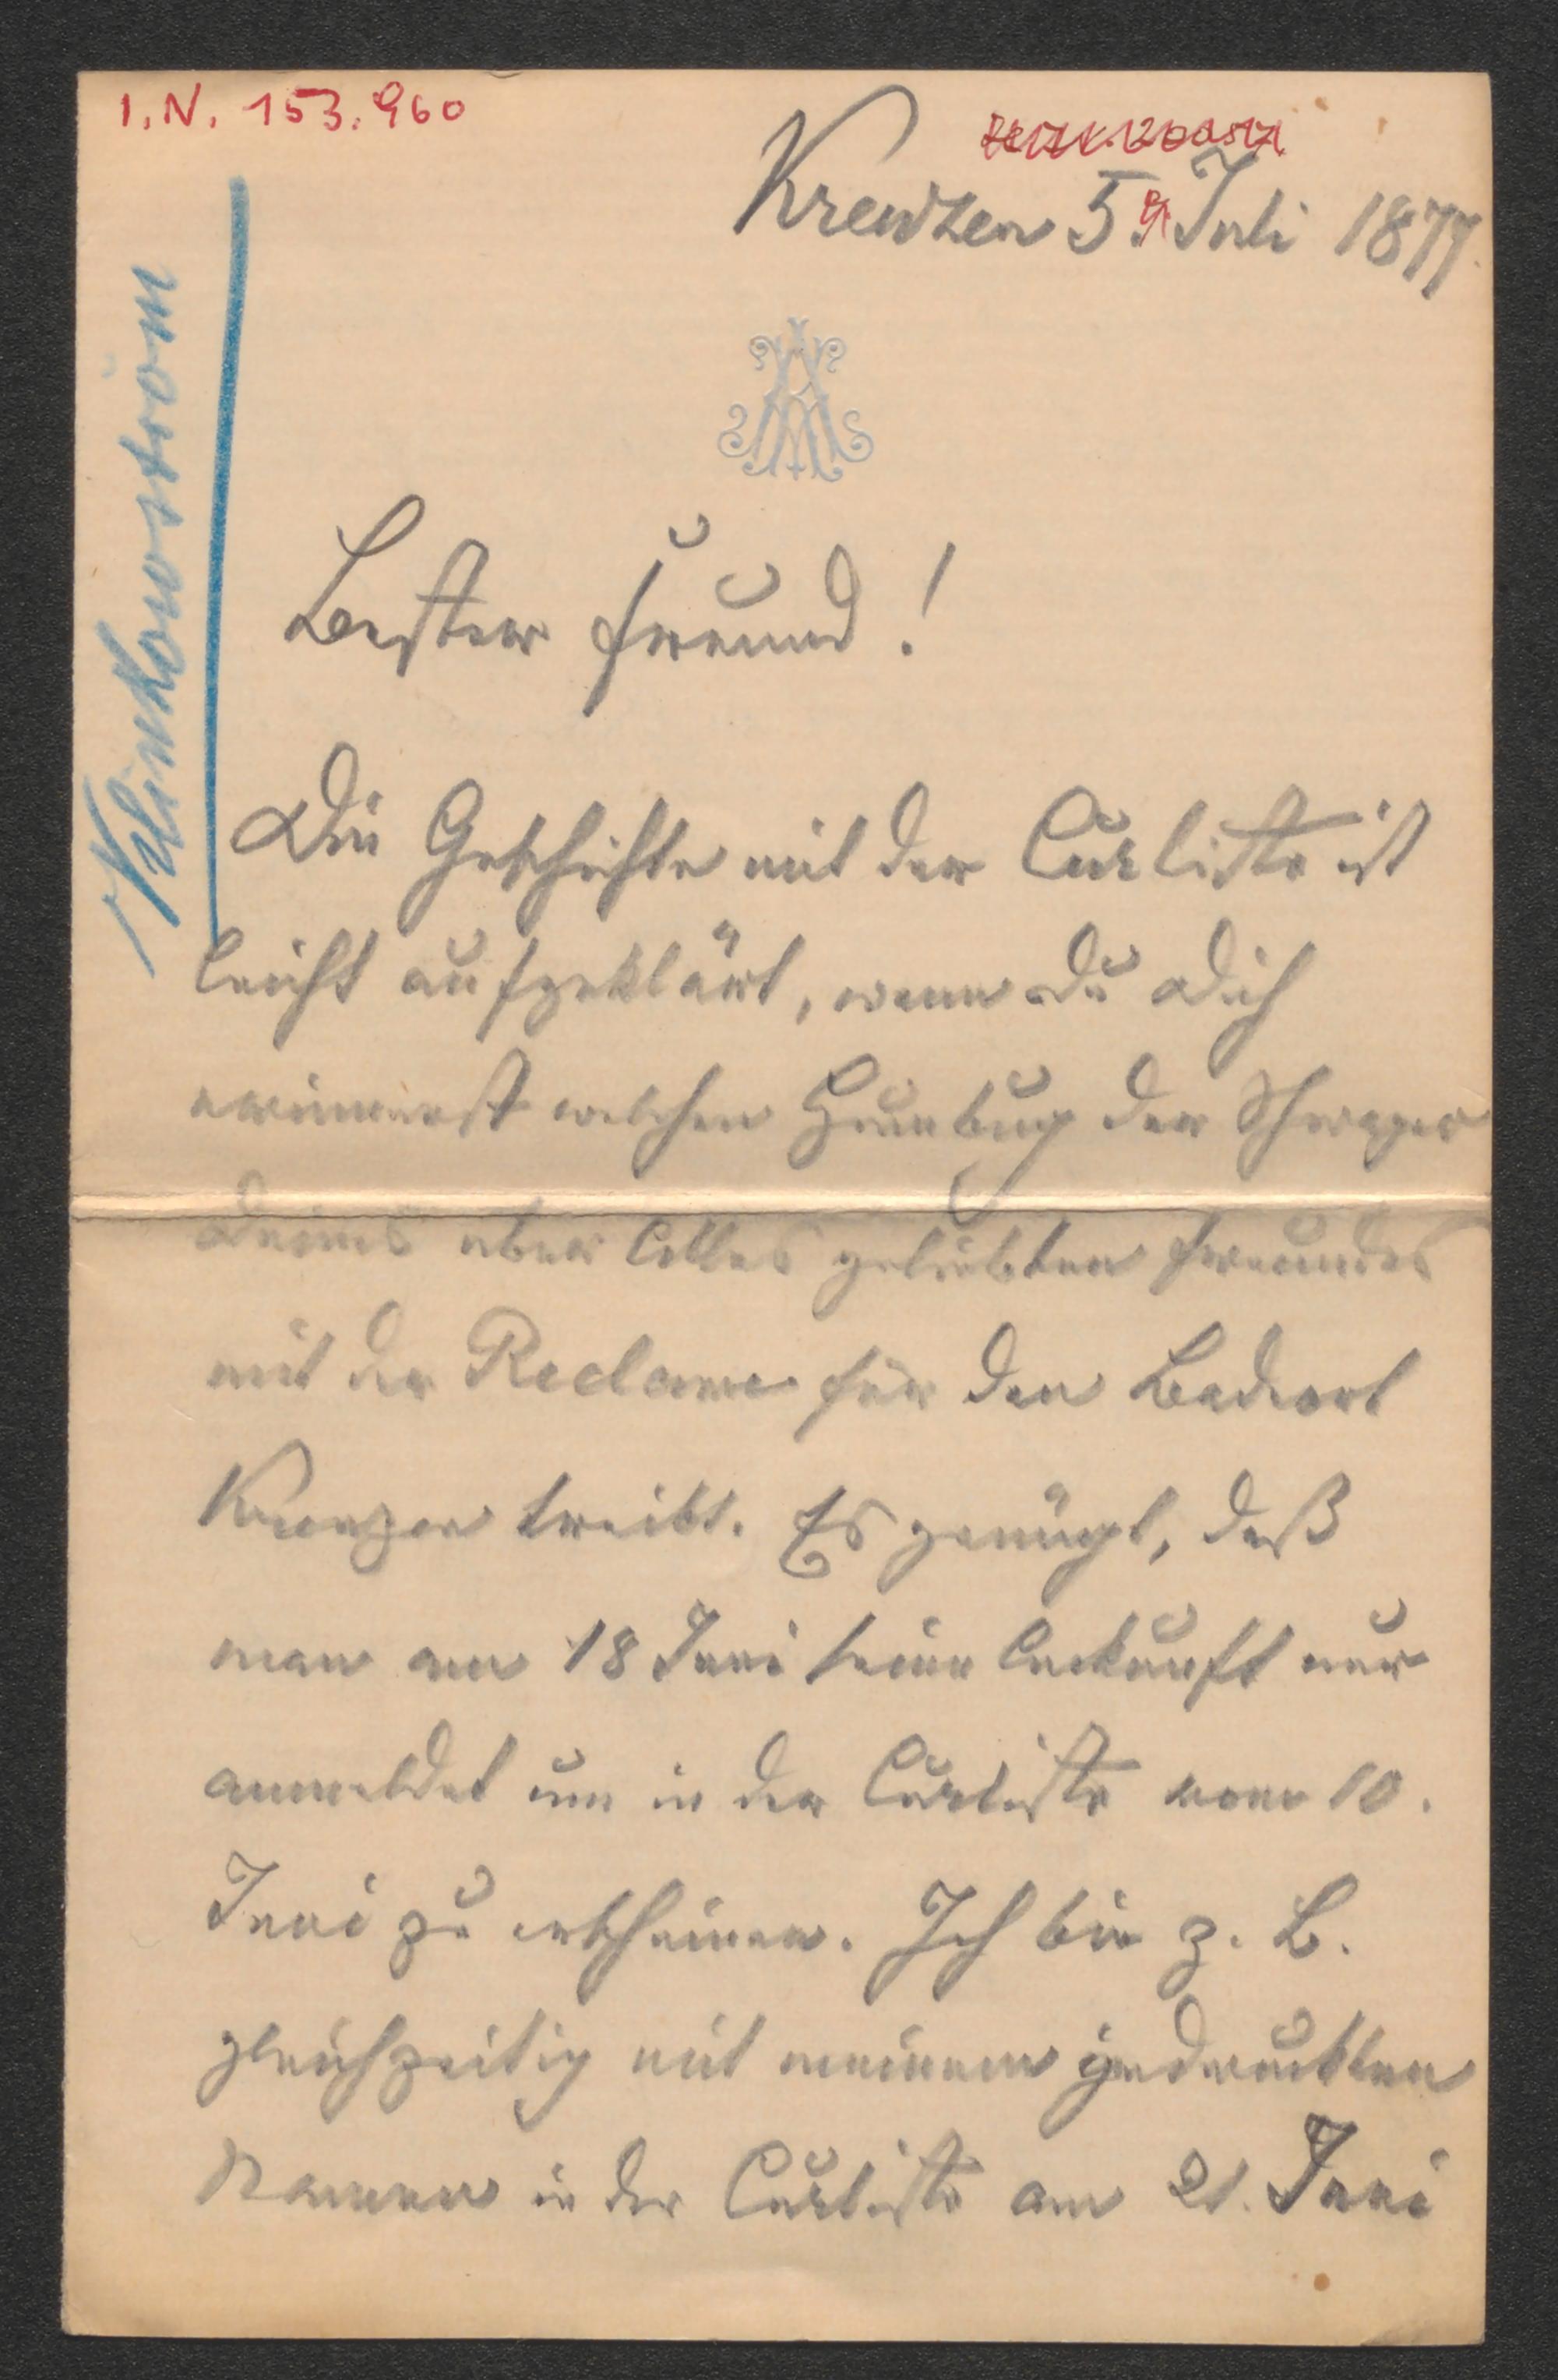 I.N. 153.960
Kreuzen 5. Juli 1877.
Klinkowström
Bester Freund!
Die Geschichte mit der Curliste ist
leicht aufgeklärt, wenn Du Dich
erinnerst welchen Humbug der Schwager
Deines über Alles geliebten Freundes
mit der Reclame für den Badeort
Kreuzen treibt. Es genügt, daß
man am 18 Juni seine Ankunft nur
anmeldet um in der Curliste vom 10.
Juni zu erscheinen. Ich bin z. B.
gleichzeitig mit meinem gedruckten
Namen in der Curliste am 21. Juni